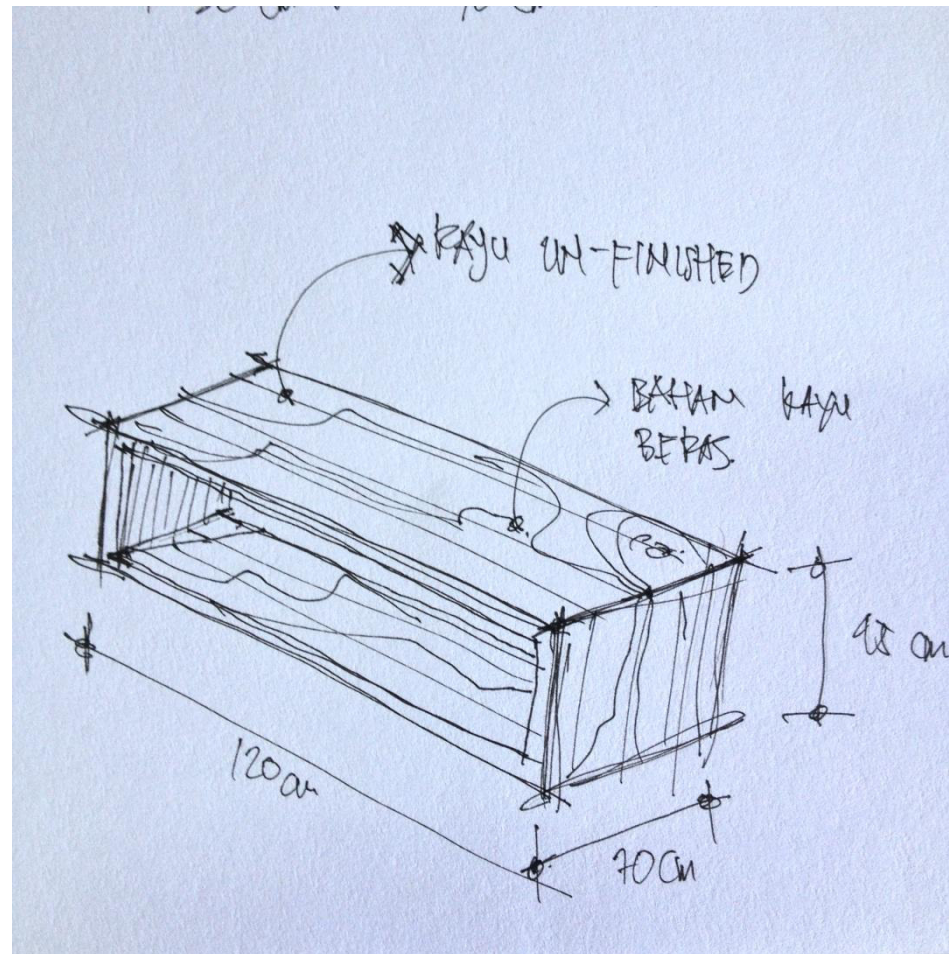 KAYU UN-FINISHED
BAHAN KAYU
BERAS.
45 cm
120 cm
70 cm